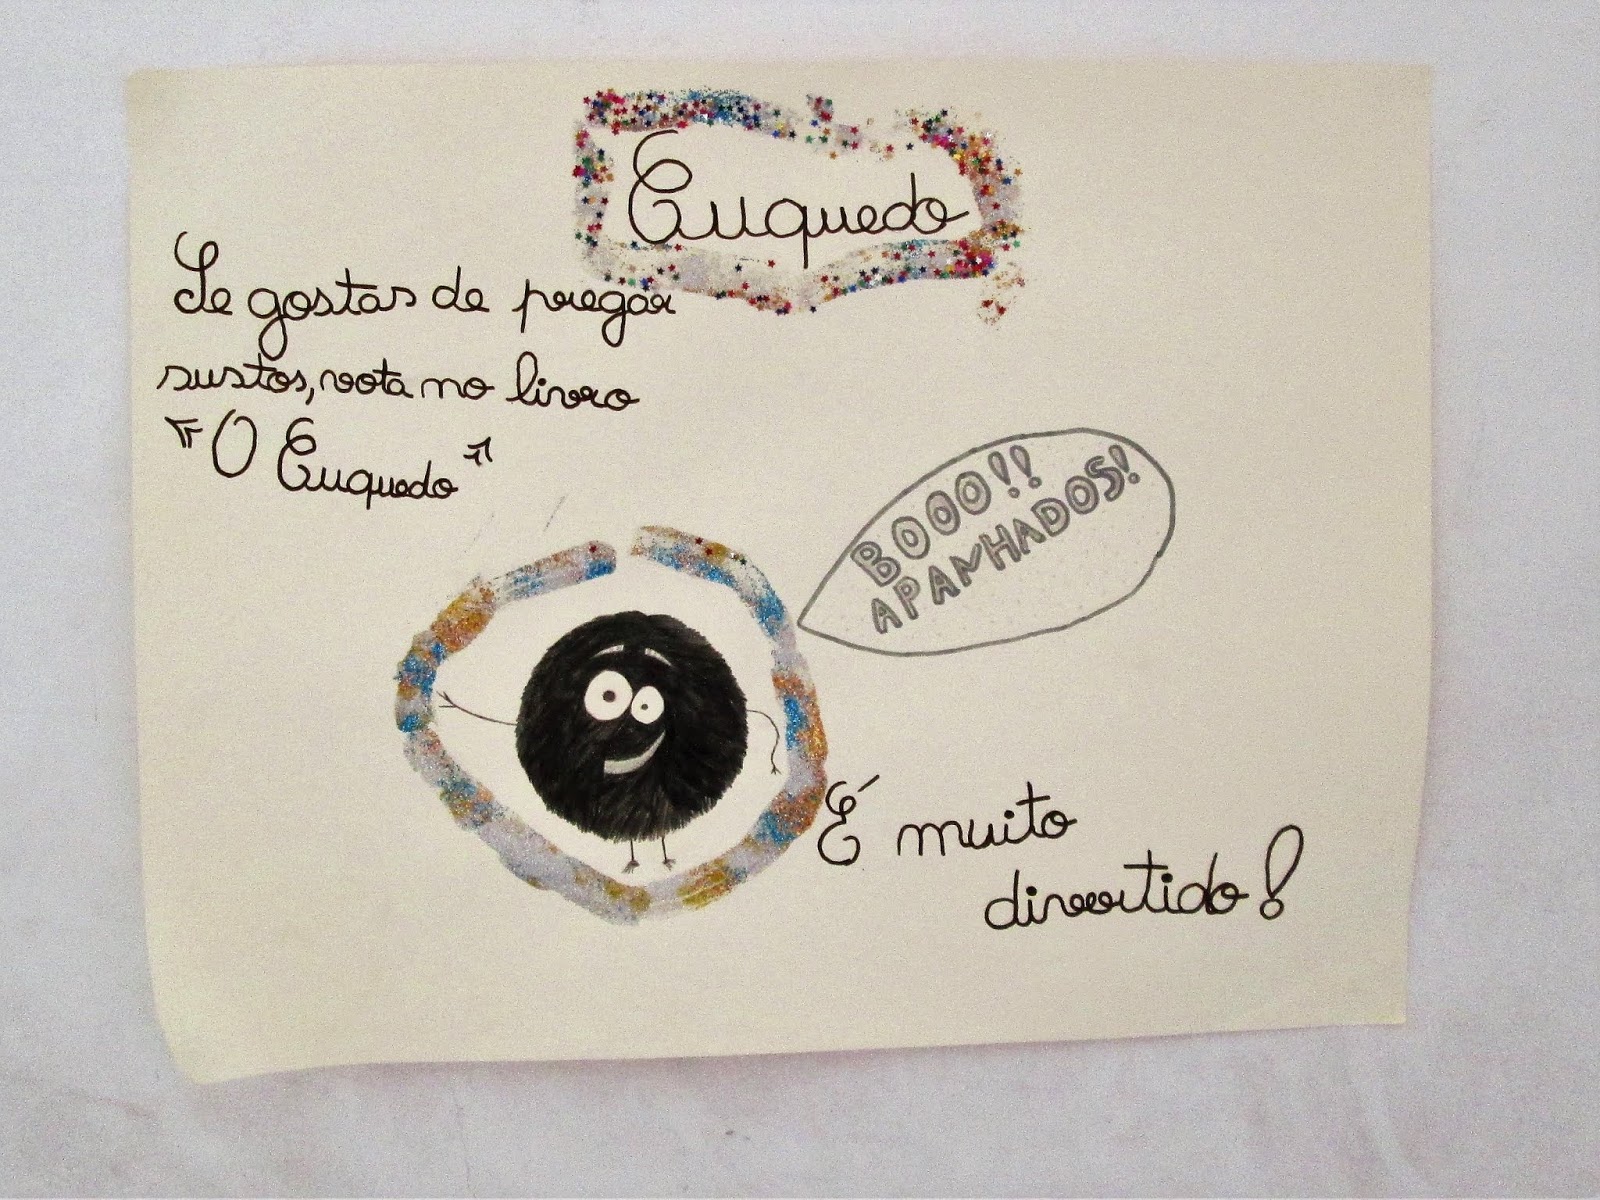 Cuquedo
Se gostas de pregar
sustos, vota no livro
"O Cuquedo"
BOOO!!
APANHADOS!
É muito
divertido!